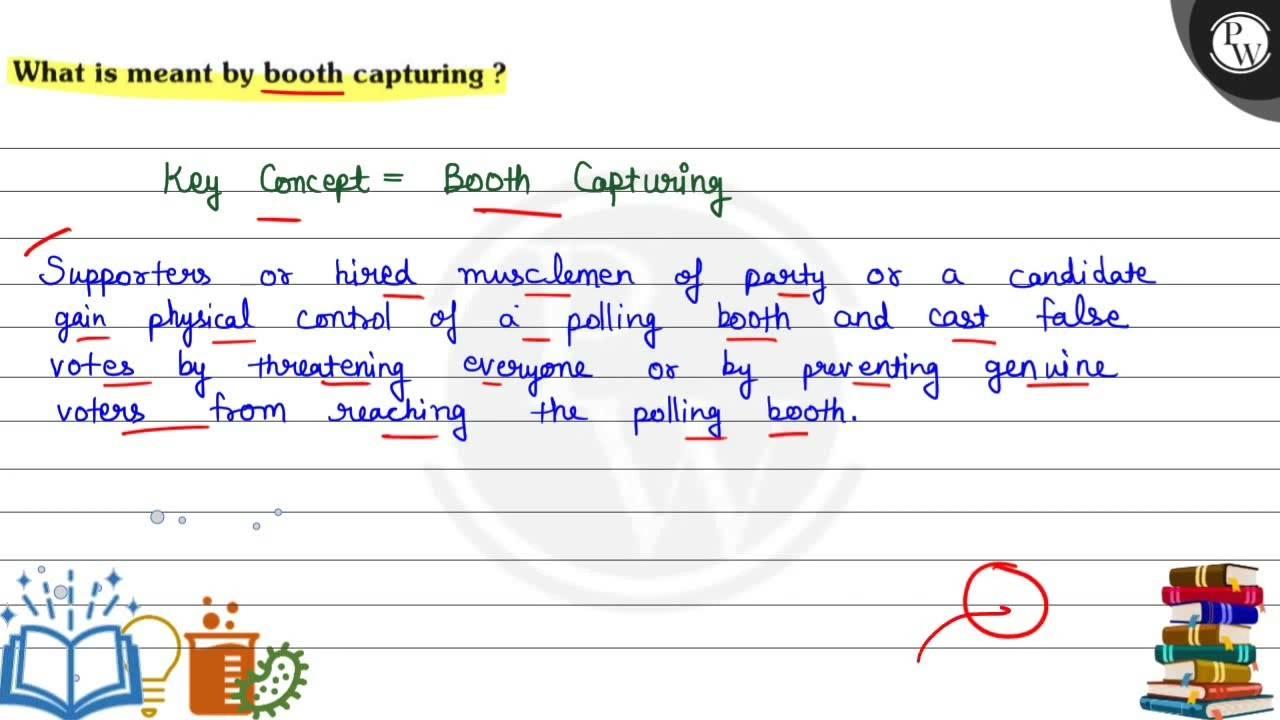 What is meant by booth capturing ?
PW
Key Concept = Booth Capturing
Supporters or hired musclemen of party or a candidate
gain physical control of a polling booth and cast false
votes by threatening everyone or by preventing genuine
voters from reaching the polling booth.
PW